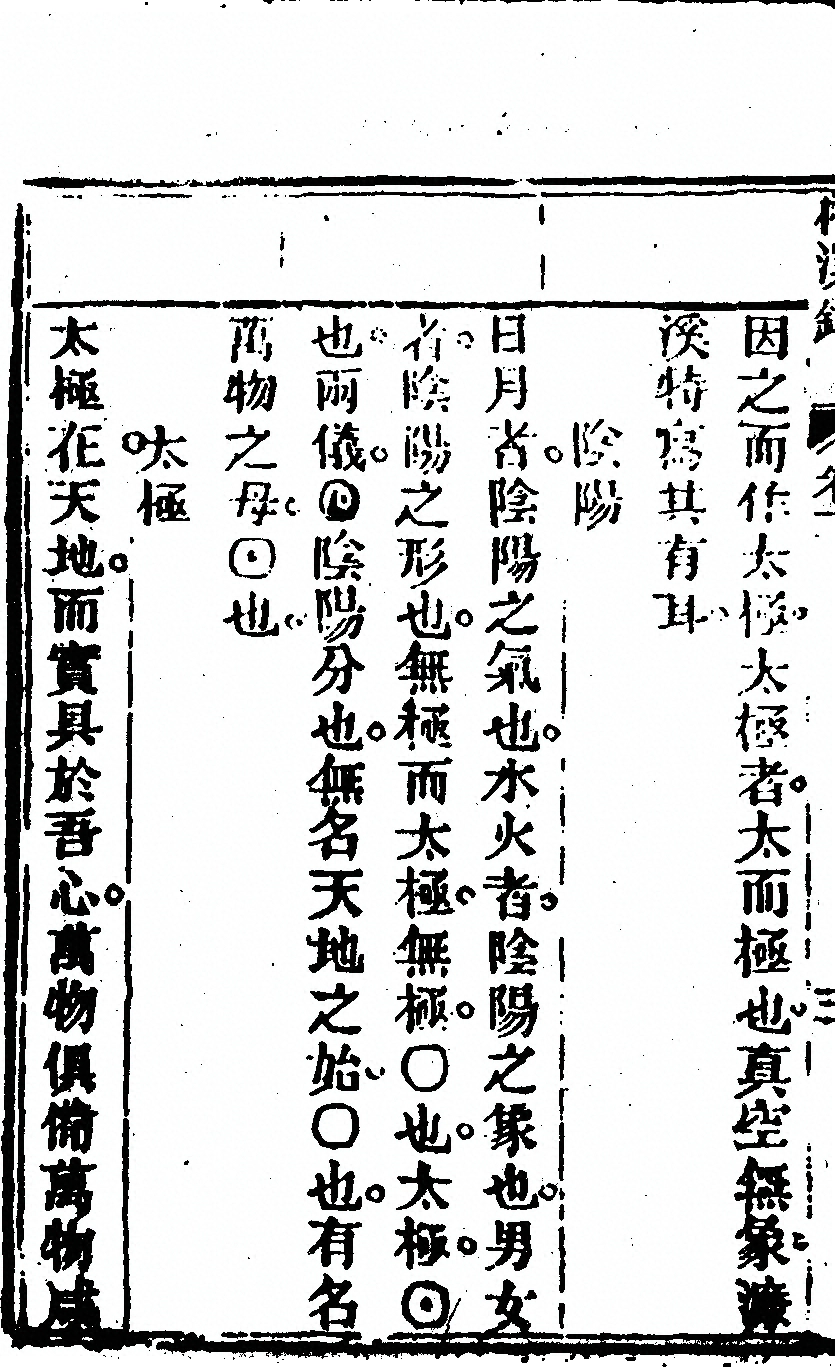 因之而作太極太極者太而極也真空無象濂
溪特寫其有耳
陰陽
日月者陰陽之氣也水火者陰陽之象也男女
者陰陽之形也無極而太極無極〇也太極☉
也兩儀陰陽分也無名天地之始〇也有名
萬物之母☉也
太極
太極在天地而實具於吾心萬物俱備萬物咸